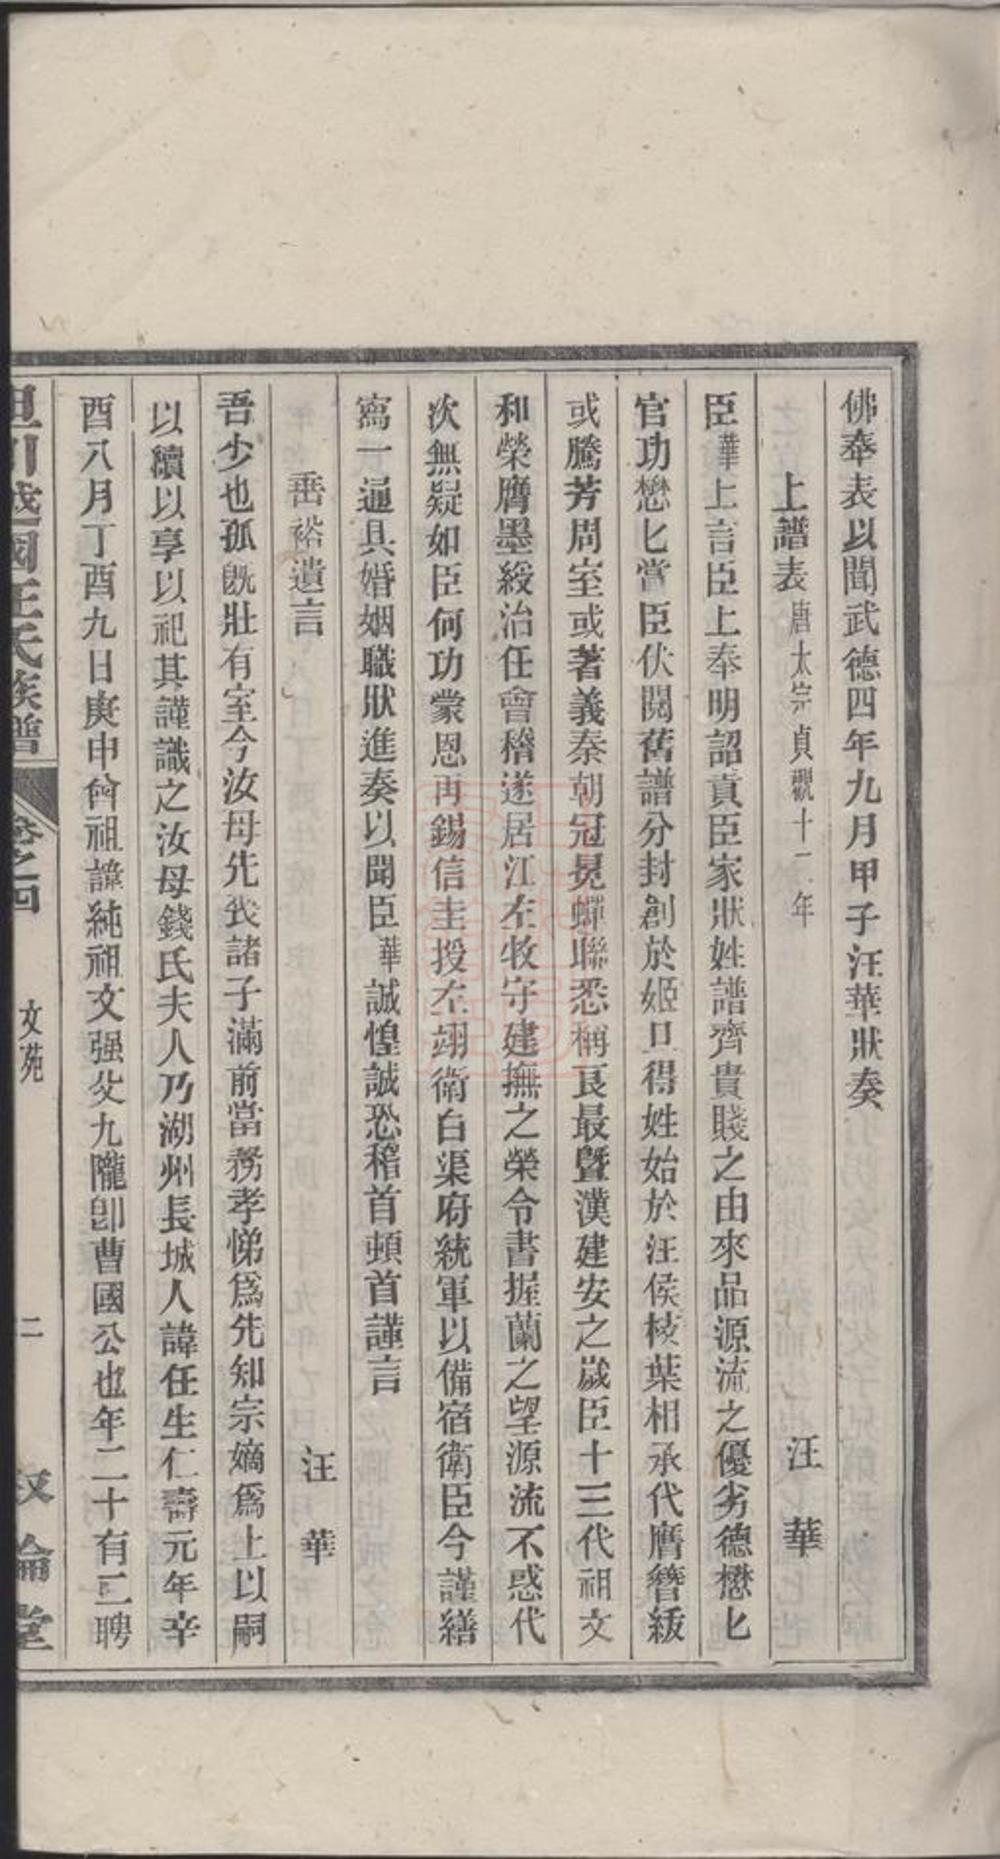 佛奉表以聞武德四年九月甲子汪華狀奏
上譜表唐太宗貞觀十一年 汪華
臣華上言臣上奉明詔責臣家狀姓譜齊貴賤之由來品源流之優劣德懋匕
官功懋匕賞臣伏閱舊譜分封創於姬旦得姓始於汪侯枝葉相承代膺簪紱
或騰芳周室或著義秦朝冠冕蟬聯悉稱良最曁漢建安之歲臣十三代祖文
和榮膺墨綬治任會稽遂居江左牧守建撫之榮令書握蘭之望源流不惑代
次無疑如臣何功蒙恩再錫信圭授左翊衛白渠府統軍以備宿衛臣今謹繕
寫一通具婚姻職狀進奏以聞臣華誠惶誠恐稽首頓首謹言
垂裕遺言 汪華
吾少也孤旣壯有室今汝母先喪諸子滿前當務孝悌爲先知宗嫡爲上以嗣
以續以享以祀其謹識之汝母錢氏夫人乃湖州長城人諱任生仁壽元年辛
酉八月丁酉九日庚申尙祖諱純祖文强父九隴卽曹國公也年二十有三聘
越國汪氏族譜 卷之四 文苑 二 敘倫堂